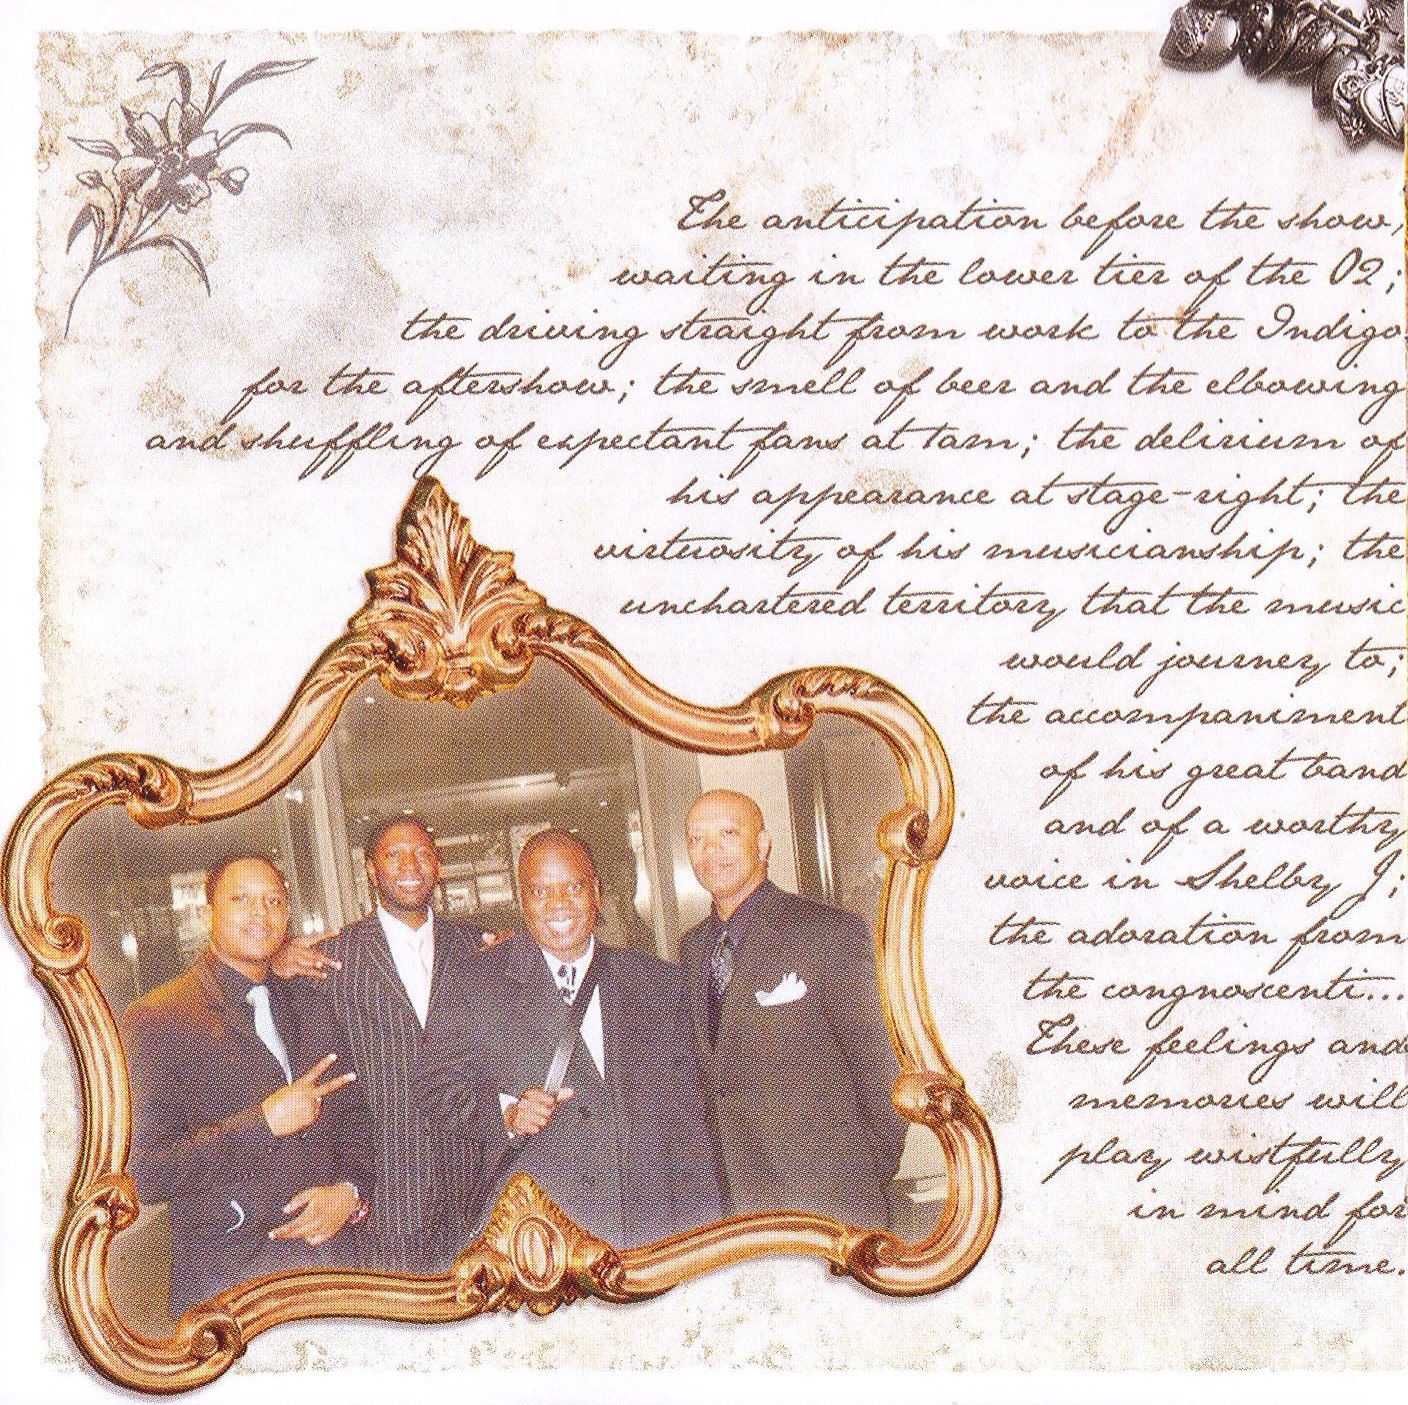 The anticipation before the show,
waiting in the lower tier of the O2;
the driving straight from work to the Indigo
for the aftershow; the smell of beer and the elbowing
and shuffling of expectant fans at 1am; the delirium of
his appearance at stage-right; the
virtuosity of his musicianship; the
unchartered territory that the music
would journey to;
the accompaniment
of his great band
and of a worthy
voice in Shelby J;
the adoration from
the congnoscenti...
These feelings and
memories will
play wistfully
in mind for
all time.